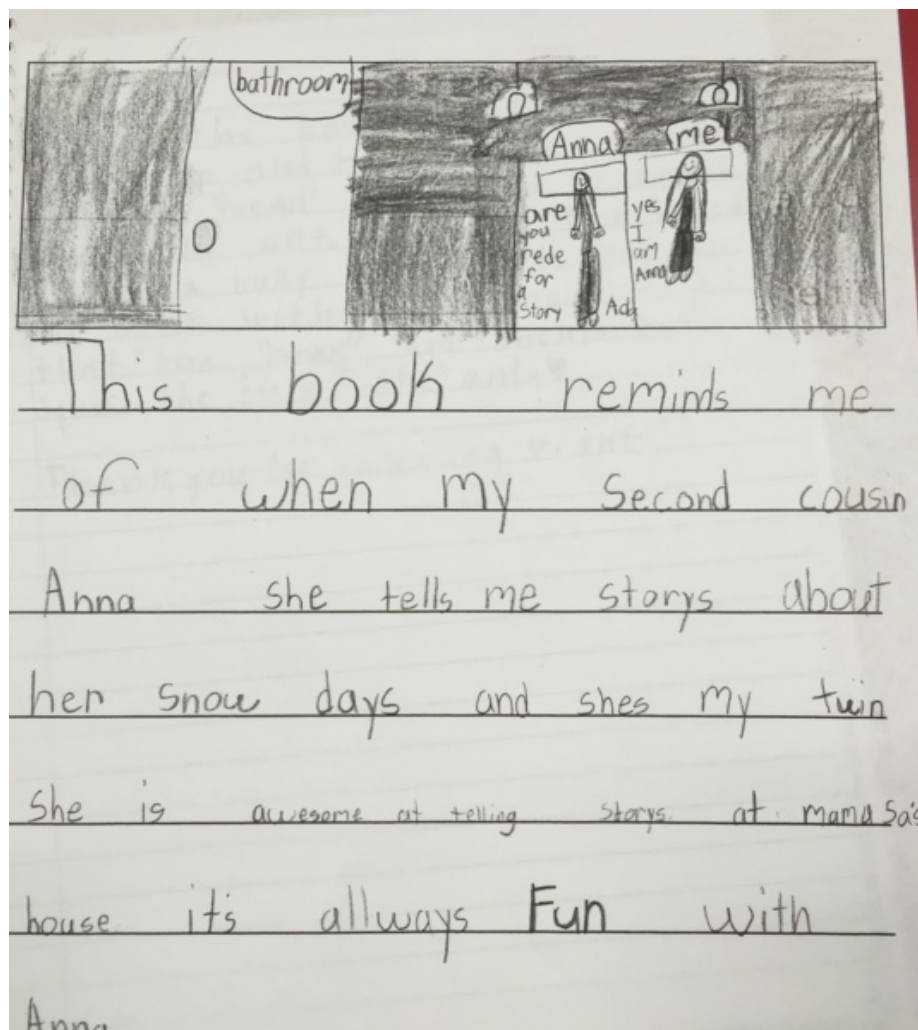 bathroom
Anna
me
are
you
rede
for
a
story
Ada
yes
I
am
Anna
This book reminds me
of when my second cousin
Anna she tells me storys about
her snow days and shes my twin
She is awesome at telling storys at mama Sa's
house it's allways Fun with
Anna